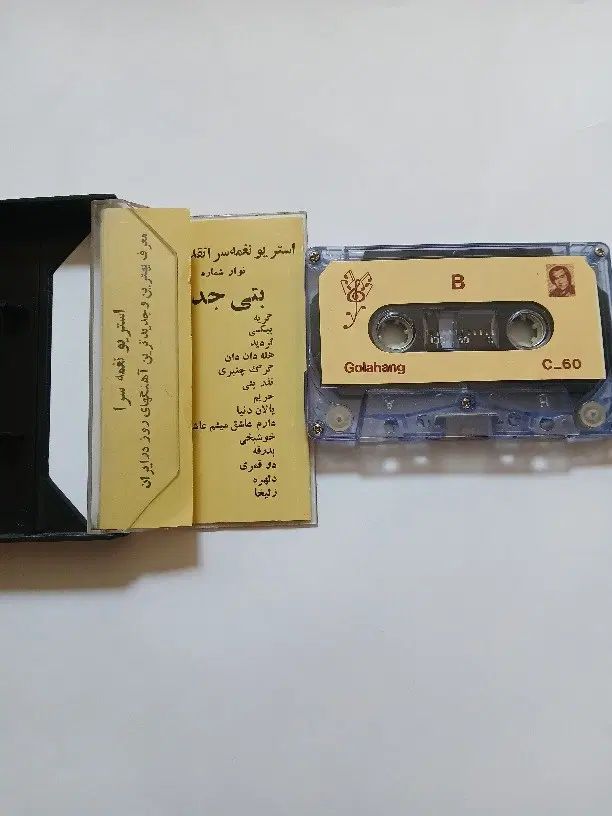 استریو نغمه سرا
معرف بهترین و جدیدترین آهنگهای روز در ایران
استریو نغمه سرا تقد
نوار شماره
بتی جد
گریه
بیکسی
تردید
هله دان دان
چرخ چنبری
نقد بتی
حریم
پالان دنیا
دارم عاشق میشم عاش
خوشبختی
بدرقه
دو قمری
دلهره
زلیخا
B
Golahang
C_60